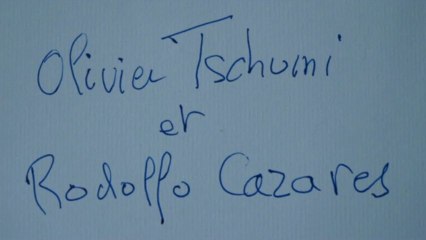 Olivier Tschumi
et
Rodolfo Cazares